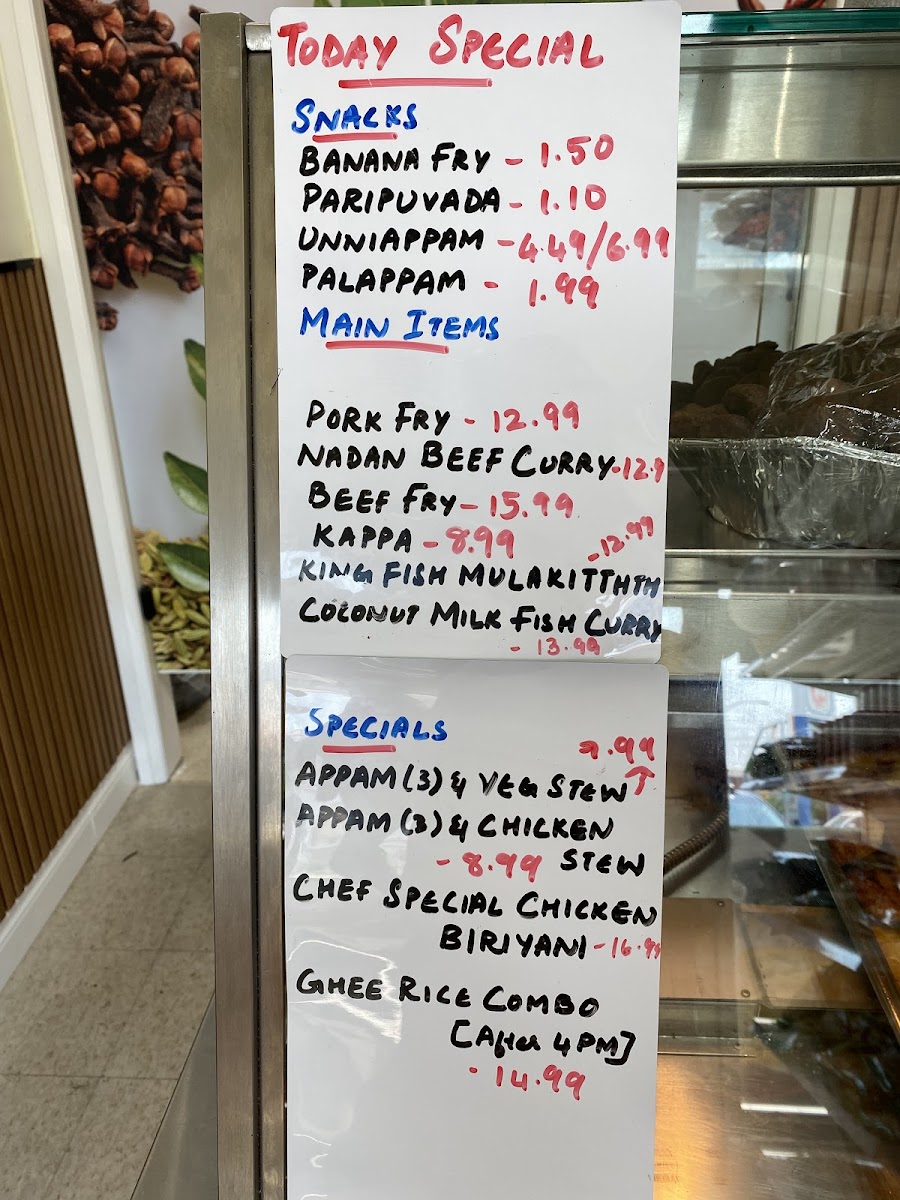 TODAY SPECIAL
SNACKS
BANANA FRY - 1.50
PARIPUVADA - 1.10
UNNIAPPAM - 4.49/6.99
PALAPPAM - 1.99
MAIN ITEMS
PORK FRY - 12.99
NADAN BEEF CURRY - 12.9
BEEF FRY - 15.99
KAPPA - 8.99
- 12.99
KING FISH MULAKITTHTH
COCONUT MILK FISH CURRY
- 13.99
SPECIALS
7.99
APPAM (3) & VEG STEW ↑
APPAM (3) & CHICKEN
- 8.99 STEW
CHEF SPECIAL CHICKEN
BIRIYANI - 16.99
GHEE RICE COMBO
[After 4PM]
- 14.99